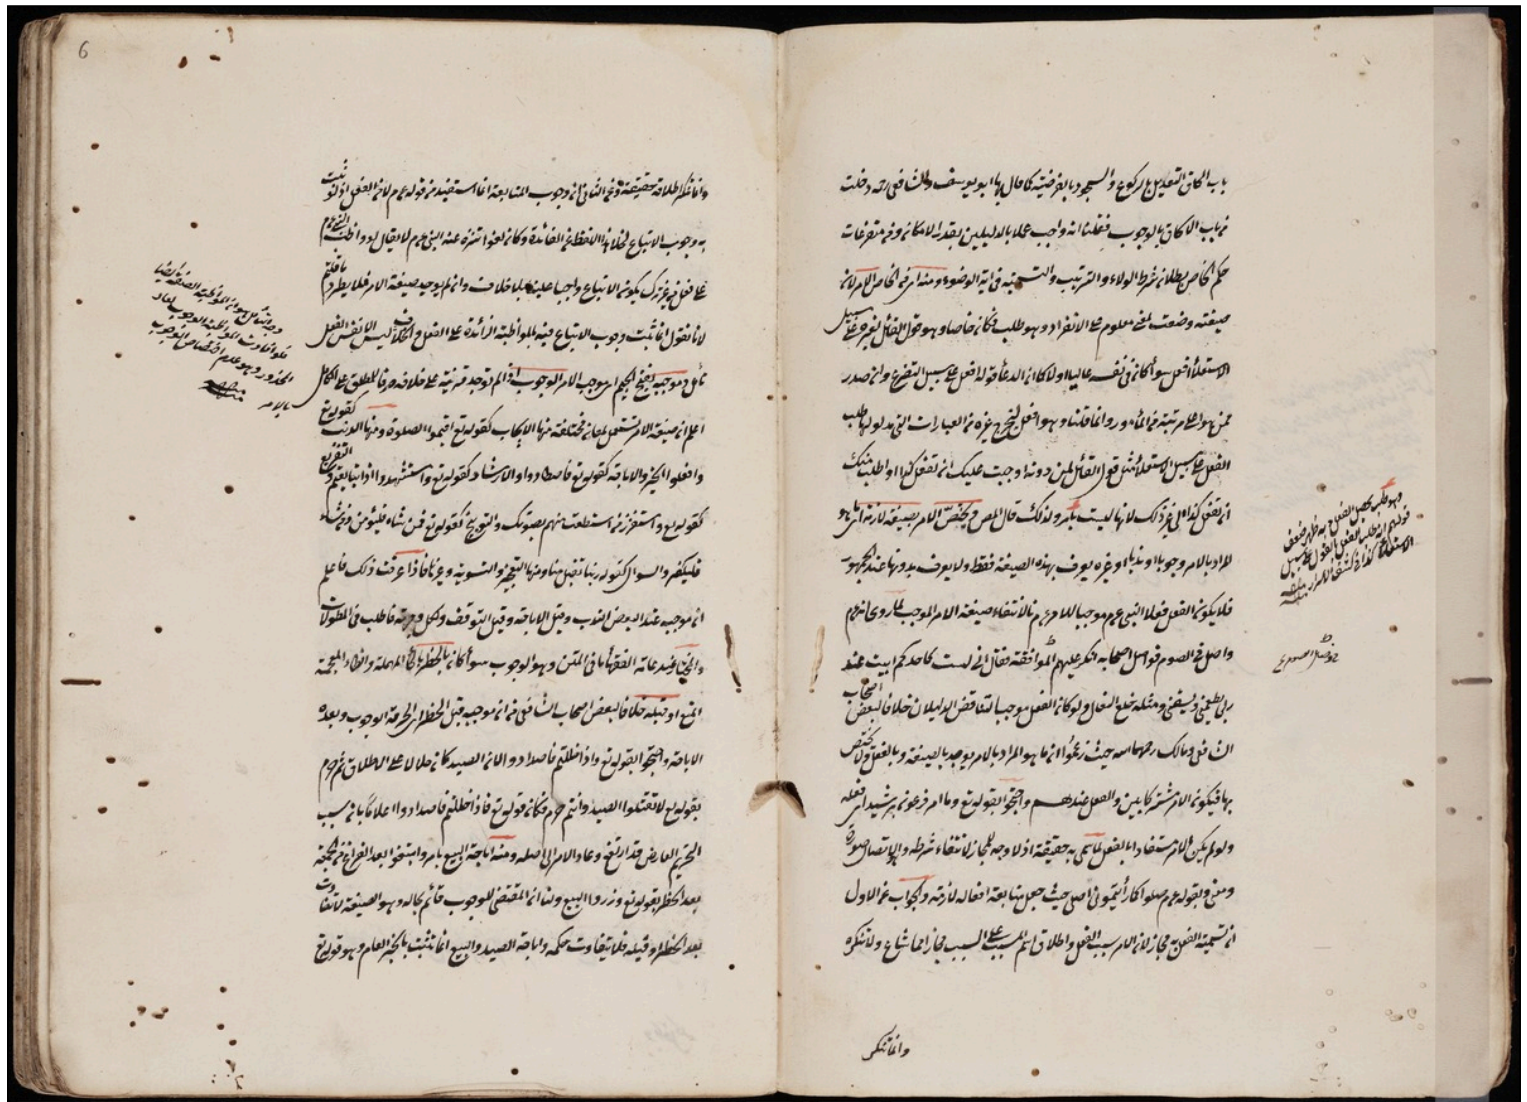 باب الحاق التعديل بالركوع والسجود بالفرضية كما قال بها ابو يوسف والشافعي رحه دخلت
من باب الالحاق بالوجوب فقلنا انه واجب عملا بالدليلين بقدر الامكان ومن متفرعات
حكم الخاص بطلان شرط الولاء والترتيب والتسمية في اية الوضوء ومنه اى من الخاص الامر لانه
صيغته وضعت لمعنى معلوم على الانفراد وهو طلب فكان خاصا وهو قول القائل لغيره على سبيل
الاستعلاء افعل سواء كان في نفسه عاليا اولا كما ان الدعاء قوله افعل على سبيل التضرع وان صدر
ممن هو اعلى مرتبة من المأمور وانما قلنا وهو افعل ليخرج غيره من العبارات التي مدلولها طلب
الفعل على سبيل الاستعلاء مثل قول القائل لمن دونه اوجبت عليك ان تفعل كذا او اطلب منك
ان تفعل كذا الى غير ذلك لانها ليست بأمر ولذلك قال المص ويختص الامر بصيغة لازمة اى ما هو
المراد بالامر وجوبا او ندبا او غيره يعرف بهذه الصيغة فقط ولا يعرف بدونها عند الجمهور
فلا يكون الفعل فعل النبي عم موجبا للامر لانتفاء صيغة الامر الموجب لما روى انه عم
واصل في الصوم فواصل اصحابه انكر عليهم الموافقة فقال اني لست كاحدكم ابيت عند
ربي يطعمني ويسقيني ومثله خلع النعال ولو كان الفعل موجبا لتناقض الدليلان خلافا لبعض اصحاب
الشافعي ومالك رحمهما الله حيث زعموا ان ما هو المراد بالامر يوجد بالصيغة وبالفعل ولا يختص
بها فيكون الامر مشتركا بين والفعل عندهم واحتجوا بقوله تع وما امر فرعون برشيد اى فعله
ولو لم يكن الامر مستفادا بالفعل لما سمى به حقيقة اذ لا وجه للمجاز لانتفاء شرطه وهو الاتصال صورة
ومعنى وبقوله عم صلوا كما رأيتموني اصلى حيث جعل متابعة افعاله لازمة والجواب عن الاول
ان تسمية الفعل به مجاز لان الامر سبب الفعل واطلاق اسم المسبب على السبب مجازا مما شاع ولا ننكره
وانما ننكر
وهو طلب تحصيل الفعل
قولهم انه طلب الفعل بالقول على سبيل
الاستعلاء كذا في كشف الاسرار
6
وانما ننكر اطلاقه حقيقة وعن الثاني ان وجوب المتابعة انما استفيد من قوله عم لا من الفعل اذ لو ثبت
به وجوب الاتباع لخلا هذا اللفظ عن الفائدة وكان لغوا تنزه عنه النبي عم لا يقال لو واظب النبي عم
على فعل من غير ترك يكون الاتباع واجبا علينا بلا خلاف وان لم يوجد صيغة الامر فلا يطرد ما قلتم
لانا نقول انما ثبت وجوب الاتباع فيه بالمواظبة الزائدة على الفعل والخلاف ليس الا نفس الفعل
تأمل وموجبه بفتح الجيم اى موجب الامر الوجوب اذا لم توجد قرينة على خلافه صرفا للمطلق على الكامل
اعلم ان صيغة الامر تستعمل لمعان مختلفة منها الايجاب كقوله تع اقيموا الصلوة ومنها الندب كقوله تع
وافعلوا الخير والاباحة كقوله تع فاصطادوا والارشاد كقوله تع واستشهدوا اذا تبايعتم والتقريع
كقوله تع واستفزز من استطعت منهم بصوتك والتوبيخ كقوله تع فمن شاء فليؤمن ومن شاء
فليكفر والسؤال كقوله ربنا تقبل منا ومنها التعجيز والتسوية وغيرها فاذا عرفت ذلك فاعلم
ان موجبه عند البعض الندب وقيل الاباحة وقيل التوقف ولكل وجهة فاطلب في المطولات
والمختار عند عامة الفقهاء ما في المتن وهو الوجوب سواء كان بعد الحظر بالحاء المهملة والظاء المعجمة
المنع او قبله خلافا لبعض اصحاب الشافعي من ان موجبه قبل الحظر اى الحرمة الوجوب وبعده
الاباحة واحتجوا بقوله تع واذا حللتم فاصطادوا لان الصيد كان حلالا على الاطلاق ثم حرم
بقوله تع لا تقتلوا الصيد وانتم حرم فكان قوله تع فاذا حللتم فاصطادوا اعلاما بان سبب
التحريم العارض قد ارتفع وعاد الامر الى اصله ومنه اباحة البيع بامر وابتغوا بعد الفراغ عن الجمعة
بعد الحظر بقوله تع وذروا البيع ولنا ان المقتضى للوجوب قائم بحاله وهو الصيغة لا تتفاوت
بعد الحظر وقبله فلا يتفاوت حكمه واباحة الصيد والبيع انما تثبت بالخبر العام وهو قوله تع